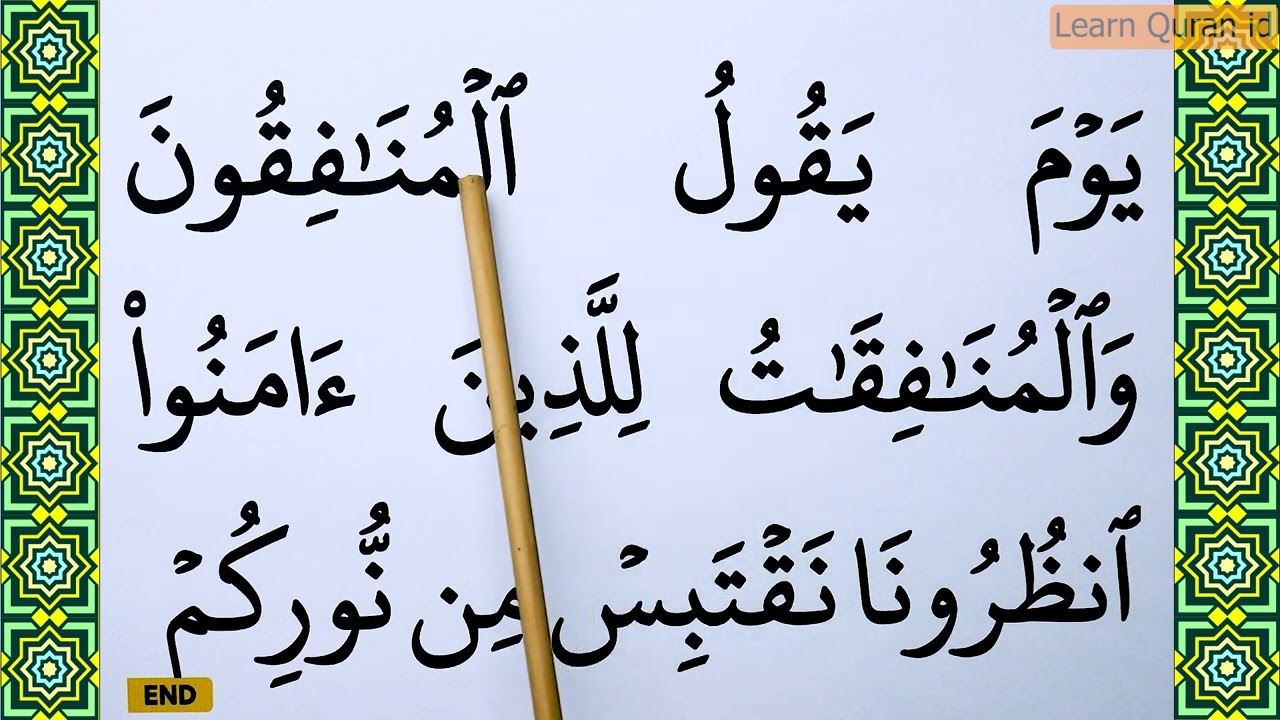 Learn Quran id
يَوْمَ يَقُولُ ٱلْمُنَـٰفِقُونَ
وَٱلْمُنَـٰفِقَـٰتُ لِلَّذِينَ ءَامَنُوا۟
ٱنظُرُونَا نَقْتَبِسْ مِن نُّورِكُمْ
END